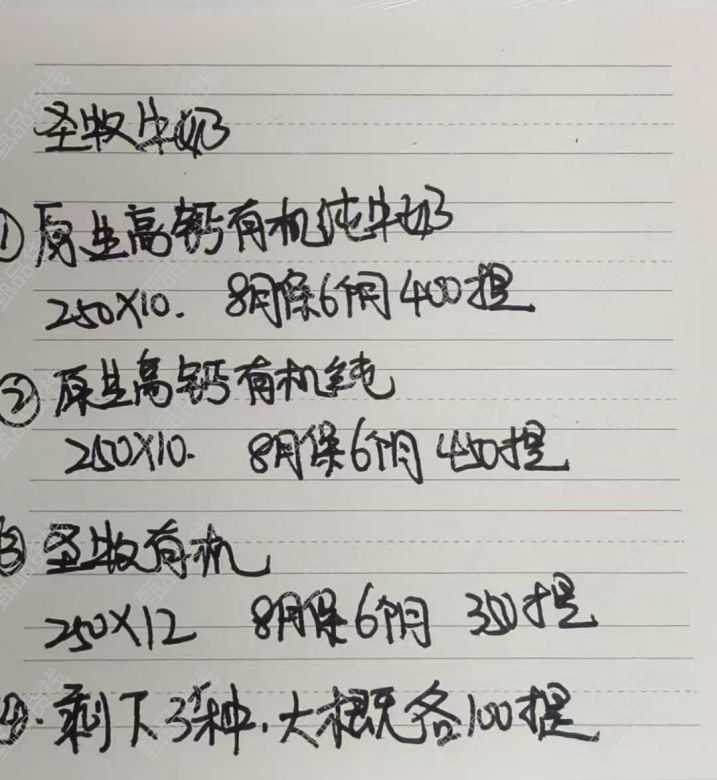 圣牧牛奶
① 原生高钙有机纯牛奶
250X10. 8月保6个月 400提
② 原生高钙有机纯
250X10. 8月保6个月 450提
③ 圣牧有机
250X12 8月保6个月 350提
④. 剩下3种. 大概各100提